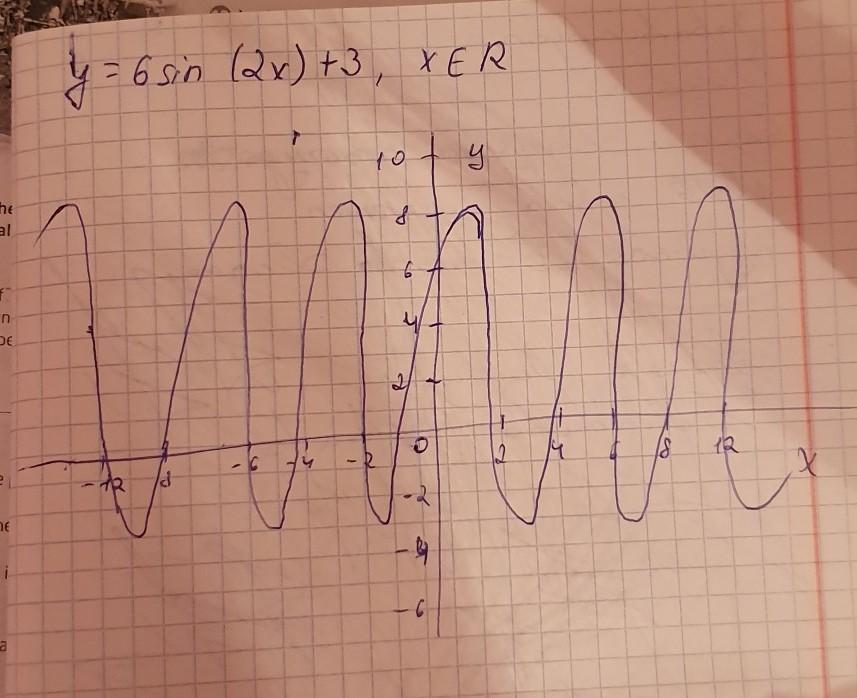 y = 6 sin (2x) + 3, x ∈ R
10 y
8
6
4
2
-12 8 -6 -4 -2 0 2 4 6 8 12 x
-2
-4
-6